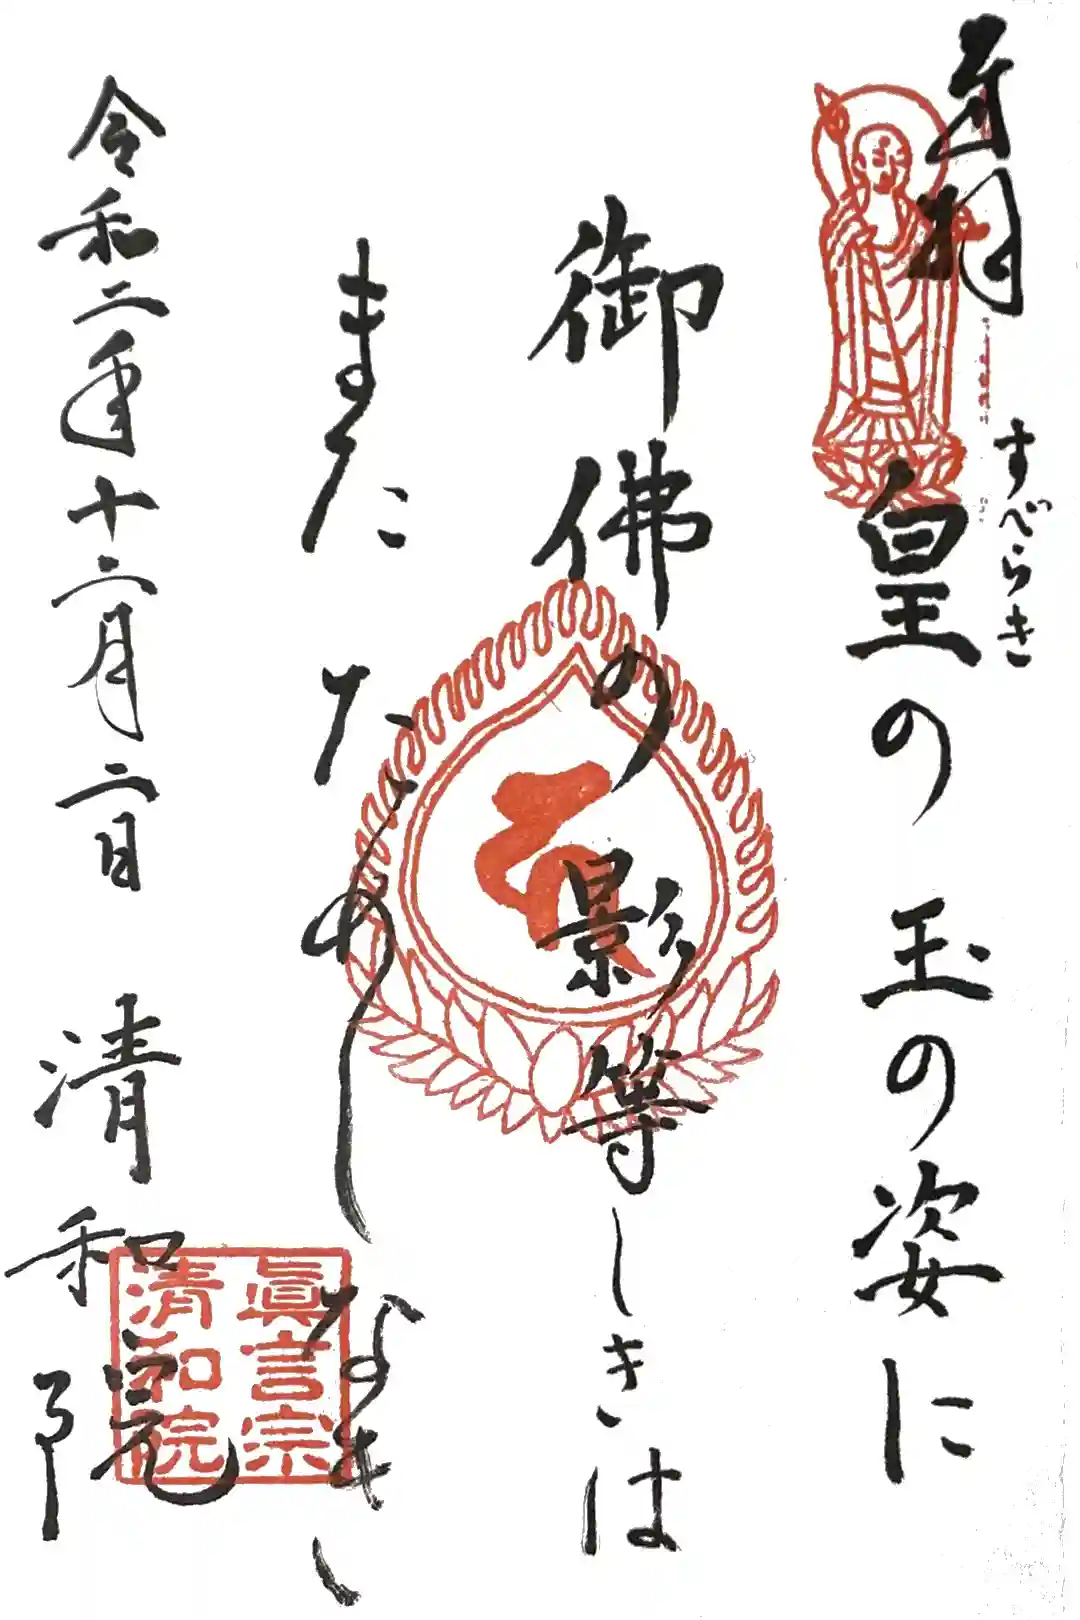 奉拝
すべらき
皇の玉の姿に
御佛の影等しきは
またためしなき
令和二年十二月二日 清和院
眞言宗
清和院